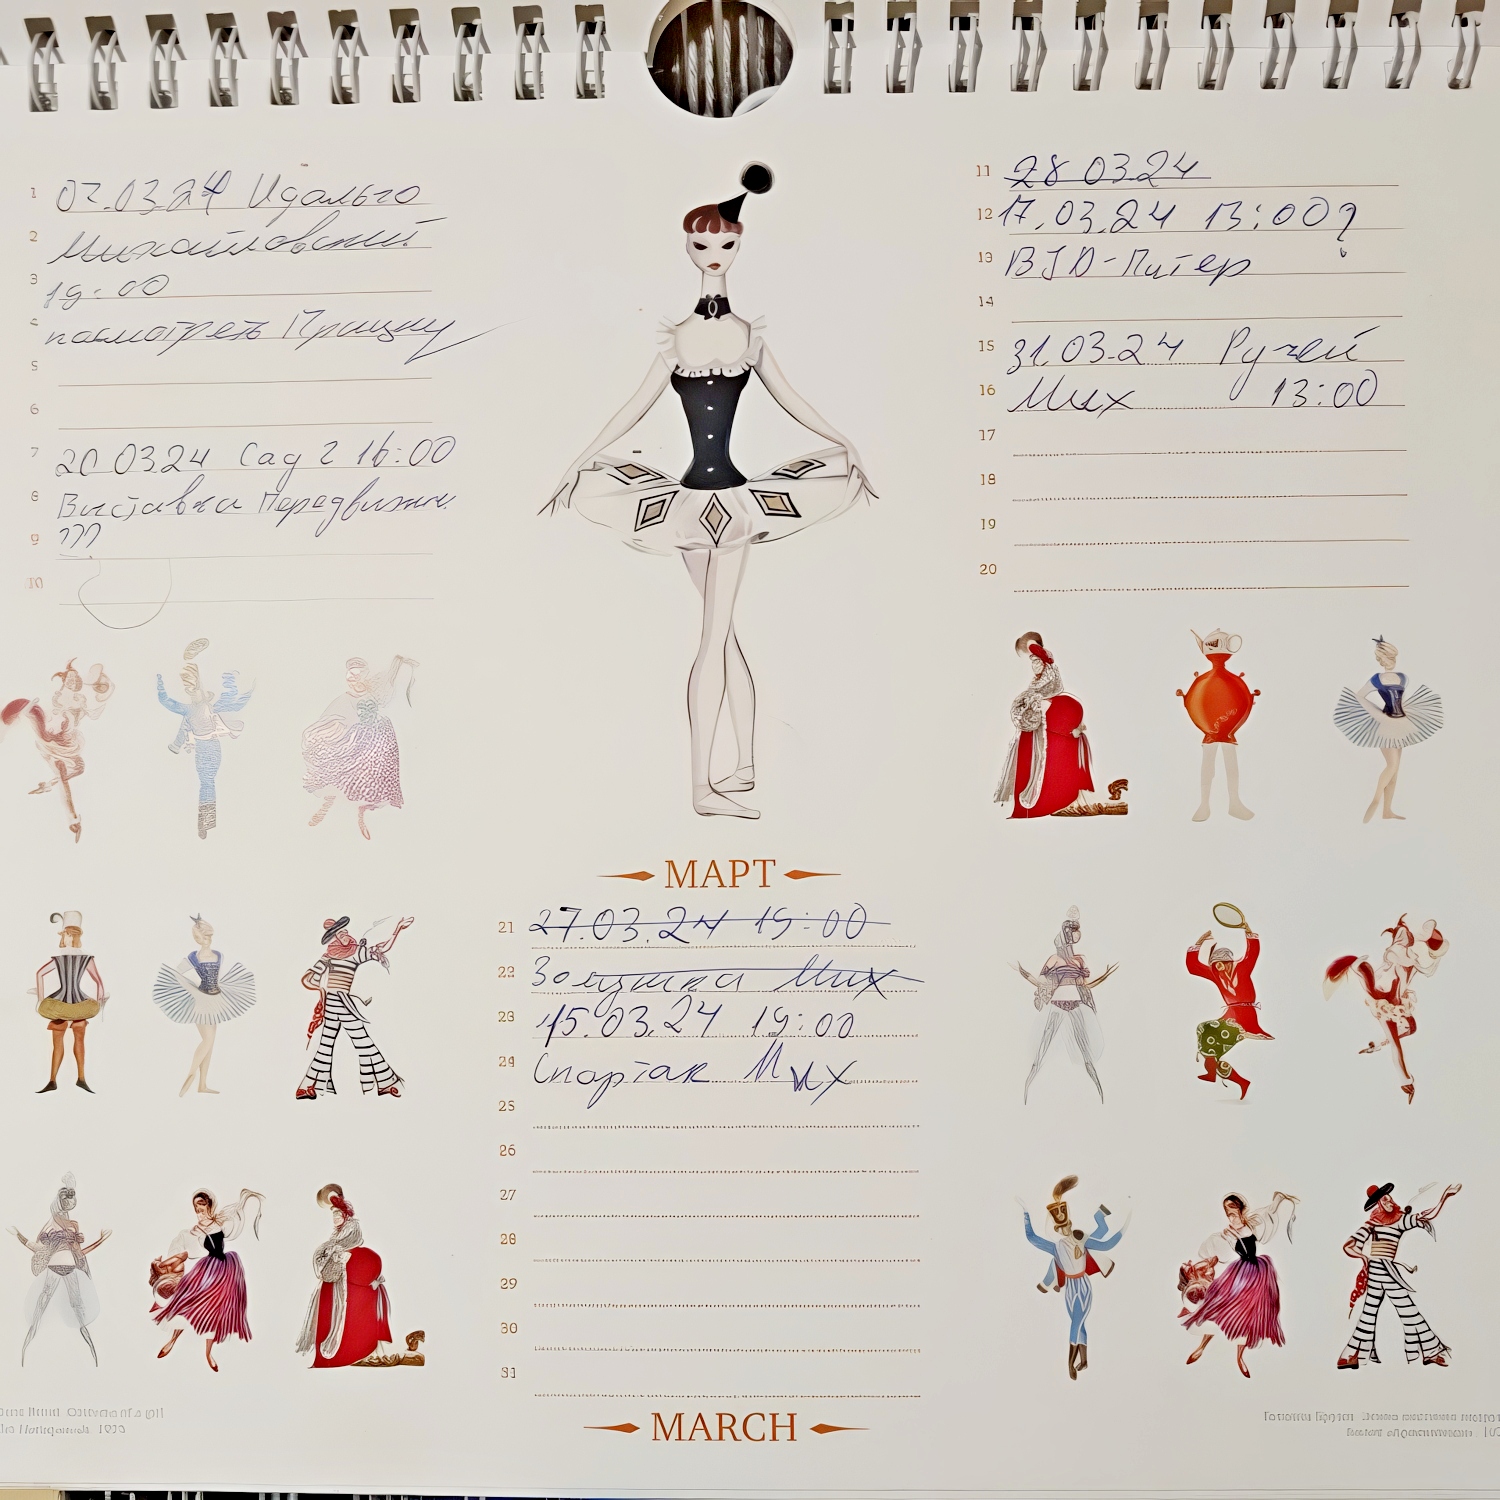 1 07.03.24 Идальго
2 Михайловский
3 19:00
4 посмотреть Прицну
5
6
7 20 03.24 Сад 2 16:00
8 Выставка Передвижн.
9 ???
10
11 28 03.24
12 17.03.24 13:00?
13 BJD-Питер
14
15 31.03.24 Ручей
16 Мих 13:00
17
18
19
20
МАРТ
21 27.03.24 19:00
22 Золушка Мих
23 15.03.24 19:00
24 Спартак Мих
25
26
27
28
29
30
31
MARCH